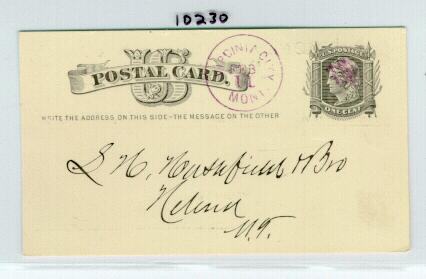 10230
US
POSTAL CARD.
VIRGINIA CITY
FEB
11
MONT.
U.S. POSTAGE
ONE CENT
WRITE THE ADDRESS ON THIS SIDE - THE MESSAGE ON THE OTHER
& Bro
Helena
M.T.